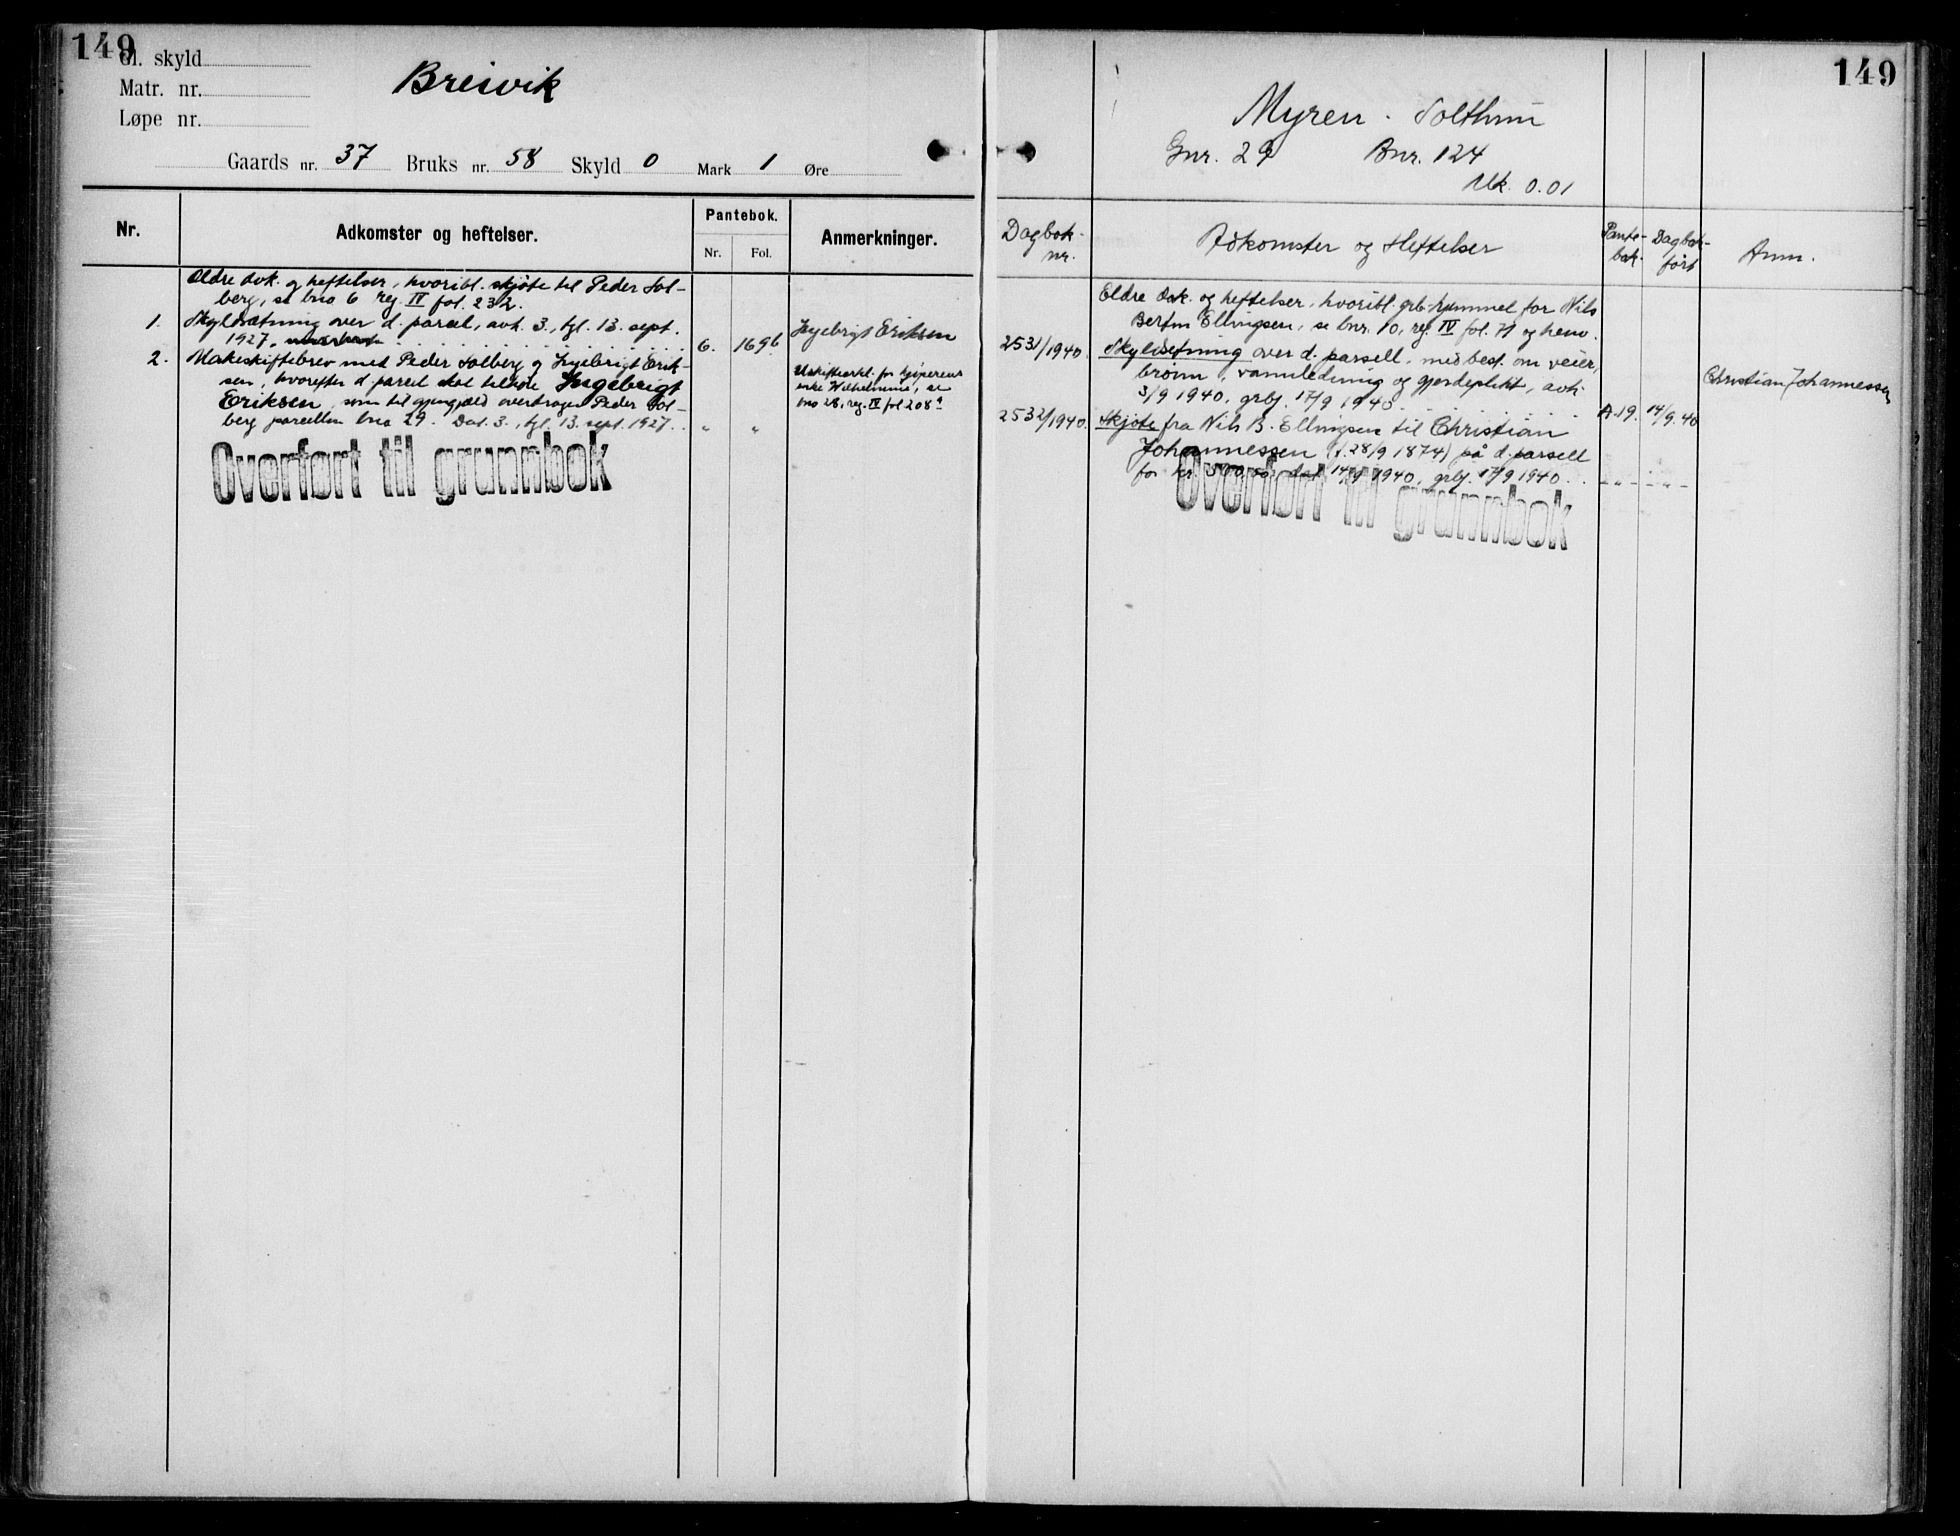 149
Gl. skyld
Matr. nr.
Løpe nr.
Breivik
Gaards nr. 37 Bruks nr. 58 Skyld 0 Mark 1 Øre
Nr.
Adkomster og heftelser.
Pantebok.
Nr. Fol.
Anmerkninger.
Ældre dok. og heftelser, hvoribl. skjøte til Peder Sol-
berg, se bno 6 reg. IV fol. 232.
1. Skyldsætning over d. parcel, avh. 3., tgl. 13. sept.
1927, 6. 169b
Ingebrigt Eriksen
2. Makeskiftebrev med Peder Solberg og Ingebrigt Erik-
sen, hvorefter d. parcel skal tilhøre Ingebrigt
Eriksen, som til gjengjæld overdrager Peder Sol-
berg parcellen bno 29. Dat. 3., tgl. 13. sept. 1927. " "
Uskifteerkl. for kjøperens
enke Wilhelmine, se
bno 28, reg. IV fol 208a
Overført til grunnbok
149
Myren - Solthun
Gnr. 29 Bnr. 124
Mk. 0.01
Dagbok-
nr.
Adkomster og Heftelser
Pante-
bok
Dagbok-
ført
Anm.
Eldre dok. og heftelser, hvoribl. grb. hjemmel for Nils
Bertin Ellingsen, se bnr. 10, reg. IV fol. 71 og henv.
2531/1940. Skyldsetning over d. parsell, med best. om veier,
brønn, vannledning og gjerdeplikt, avh.
3/9 1940, grbj. 17/9 1940. A.19. 14/9.40
Christian Johannessen
2532/1940. Skjøte fra Nils B. Ellingsen til Christian
Johannessen (f. 28/9 1874) på d. parsell
for kr. 300.00, dat 14/9 1940, grbj. 17/9 1940. - " - - " -
Overført til grunnbok